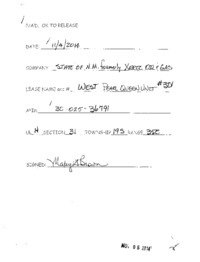 P/A'D. OK TO RELEASE
DATE 11/6/2014
COMPANY STATE OF N.M. formerly Xeric Oil & Gas
LEASE NAME & #. WEST Pearl Queen Unit
API# 30-025-36791
UL H SECTION 31 TOWNSHIP 19S RANGE 35E
SIGNED Mary Brown